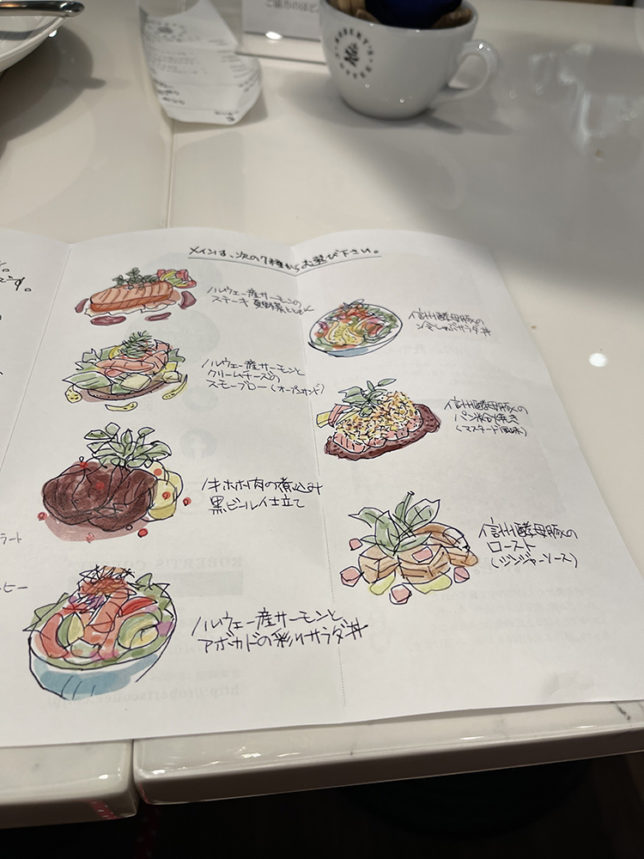 メインは、次の7種からお選び下さい。
ノルウェー産サーモンの
ステーキ
ノルウェー産サーモンと
クリームチーズの
スモーブロー(オープンサンド)
牛ホホ肉の煮込み
黒ビール仕立て
ノルウェー産サーモンと
アボカドの彩りサラダ丼
信州酵母豚の
冷しゃぶサラダ丼
信州酵母豚の
パン粉焼き
(マスタード風味)
信州酵母豚の
ロースト
(ジンジャーソース)
ラート
ーヒー
ROBERT'S
COFFEE